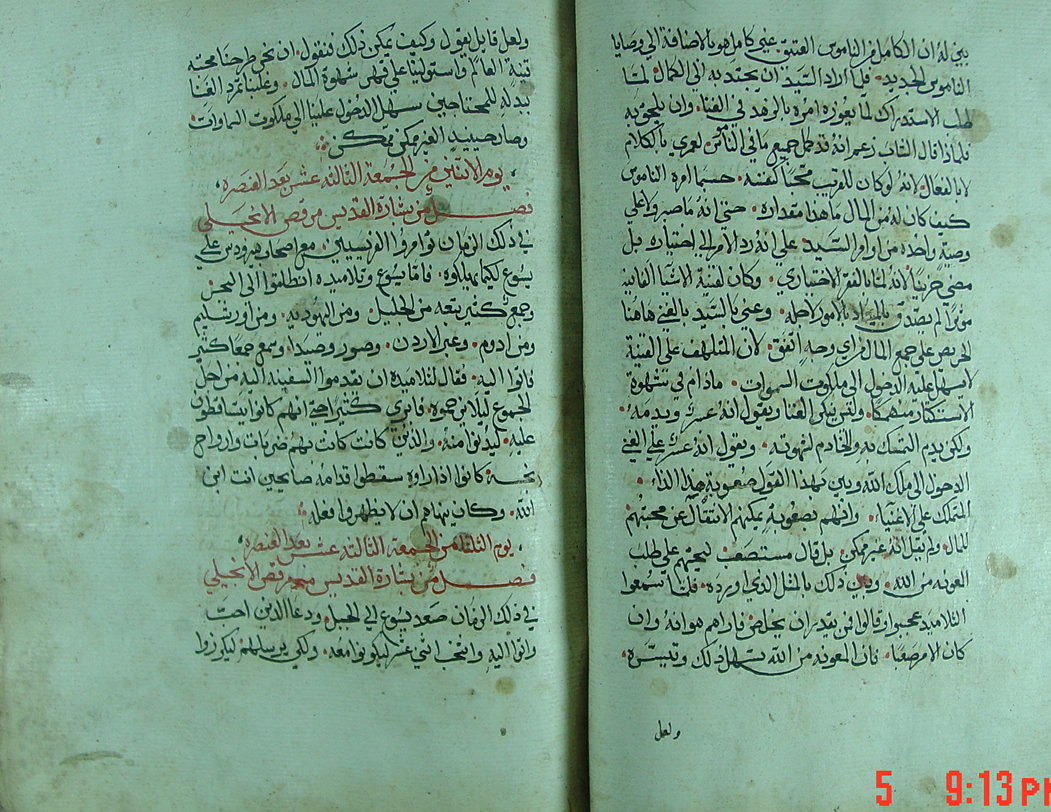 بين له ان الكامل في الناموس العتيق غير كامل هو بالاضافة الى وصايا
الناموس الجديد فلما اراد السيد ان يجتذبه الى الكمال لما
طلب الاستدراك لما يعوزه امره بالزهد في الغنا وان
فلماذا قال الشاب زعم انه قد كمل جميع ما في الناموس لعمري بالكلام
لا بالفعال لانه لو كان للقريب محبا كنفسه حسبما امره الناموس
كيف كان له من المال ما هذا مقداره حتى انه ما صبر ولا على
وصية واحدة من اوامر السيد على انه رد الامر الى اختياره بل
مضى حزينا لانه لم يشا بالفقر الاختياري وكان لقنية الاشيا الفانيه
موثرا لم يصدق بالامور الاجله وعنى السيد بالغني هاهنا
الحريص على جمع المال من اي وجه اتفق لان المتلهف على القنية
لا يسهل عليه الدخول الى ملكوت السموات ما دام في شهوة
الاستكثار منهمكا وليس ينكر الغنا ويقول انه عسر ويذمه
ولكن يذم التمسك به والخادم لشهوته ويقول انه عسر على الغني
الدخول الى ملك الله وبين بهذا القول صعوبة هذا الداء
المتملك على الاغنياء وافهم بصعوبة يمكنهم الانتقال عن محبتهم
للمال ولم يقل انه غير ممكن بل قال مستصعب ليحثهم على طلب
العونه من الله وبين ذلك بالمثل الذي اورده فلما سمعوا
التلاميذ عجبوا وقالوا فمن يقدر ان يخلص فاراهم هو انه وان
كان الامر صعبا فان المعونه من الله تسهل ذلك وتيسره
ولعل
ولعل قايل يقول وكيف يمكن ذلك فنقول ان نحن طرحنا محبة
قنية العالم واستولينا على قهر شهوة المال وغلبنا غرد الغنا
ببذله للمحتاجين سهل الدخول علينا الى ملكوت السماوات
وصار حينيذ الغير ممكن ممكن
يوم الاثنين من الجمعة الثالثة عشر بعد العنصره
فصل من بشارة القديس مرقص الانجيلي
في ذلك الزمان توامروا الفريسيين مع اصحاب هيرودس على
يسوع لكيما يهلكوه فاما يسوع وتلاميذه انطلقوا الى البحر
وجمع كثير تبعه من الجليل ومن اليهوديه ومن اورشليم
ومن ادوم وعبر الاردن وصور وصيدا وسمع جمعا كثير
فاتوا اليه فقال لتلاميذه ان تقدموا السفينه اليه من اجل
الجموع ليلا يزحموه فابرى كثيرا حتى انهم كانوا يتساقطون
عليه ليدنوا منه والذين كانت بهم ضربات وارواح
نجسه كانوا اذا راوه سقطوا قدامه صايحين انت ابن
الله وكان ينهاهم ان لا يظهروا فعله
يوم الثلثا من الجمعة الثالثة عشر بعد العنصره
فصل من بشارة القديس مرقص الانجيلي
في ذلك الزمان صعد يسوع الى الجبل ودعا الذين احب
واتوا اليه وانتخب اثني عشر ليكونوا معه ولكي يرسلهم ليكرزوا
5 9:13 PM